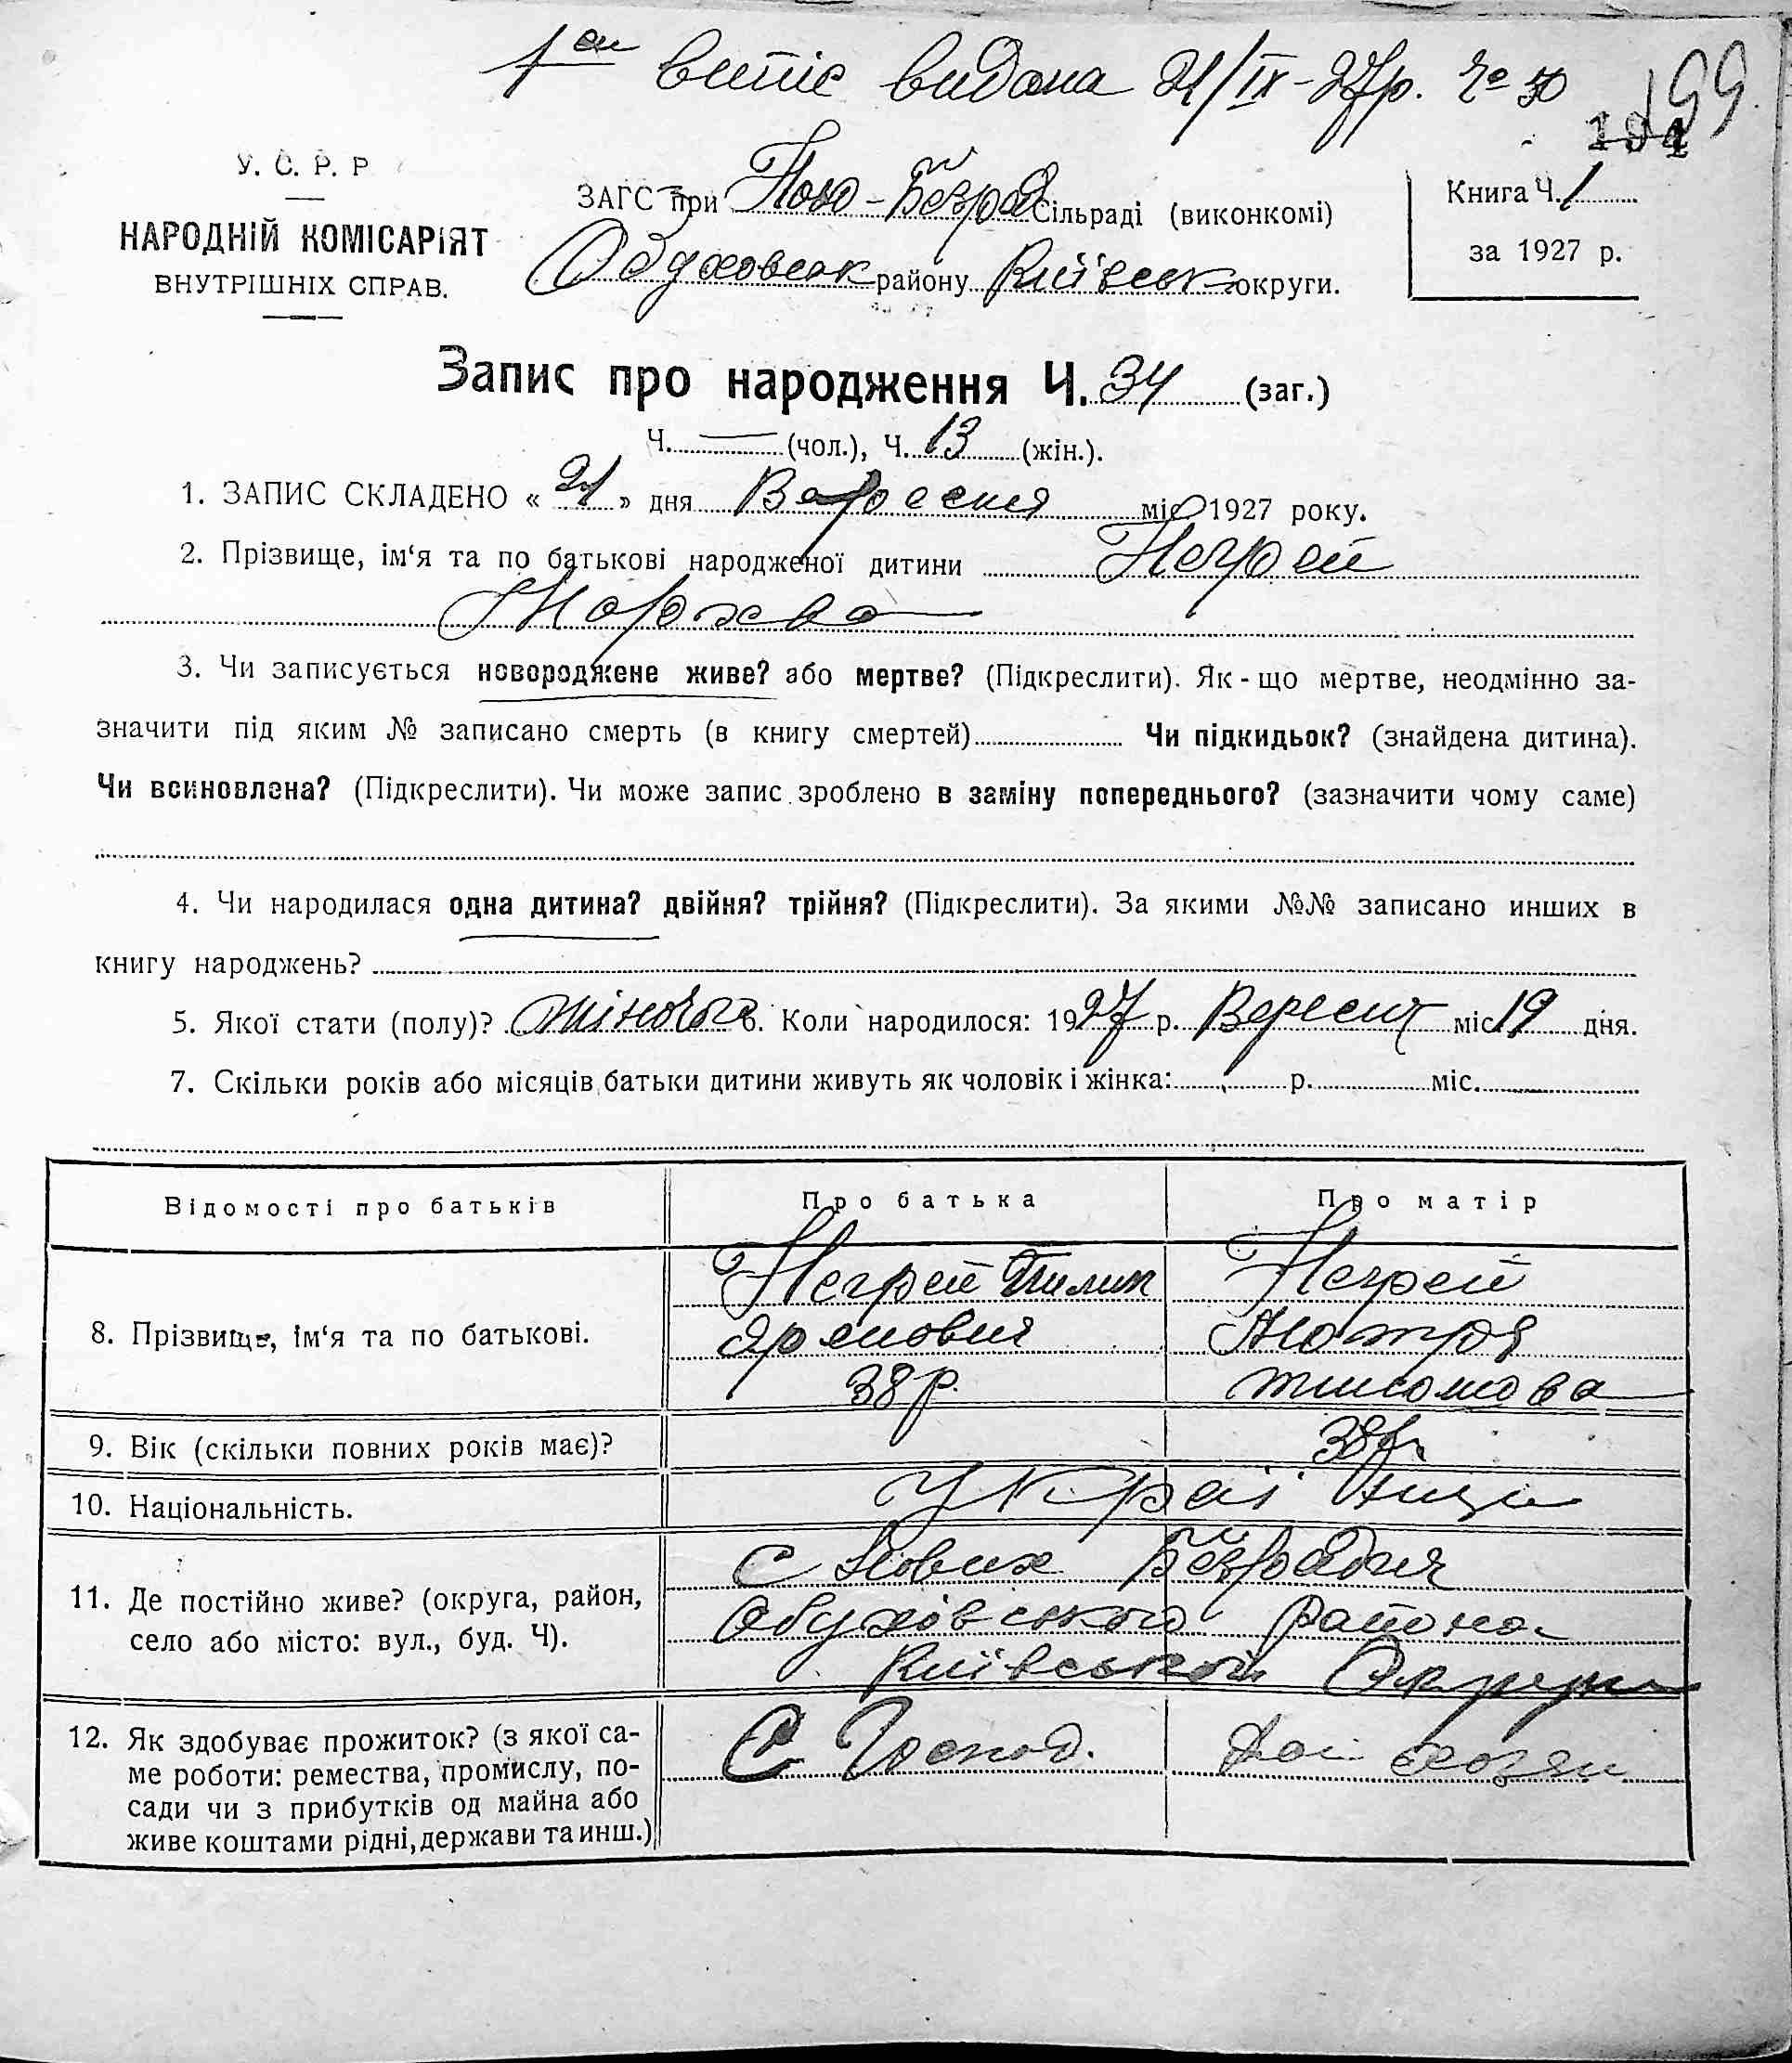 1ен витіс видана 21/IX-27р. № 30
199
194
У. С. Р. Р
НАРОДНІЙ КОМІСАРІЯТ
ВНУТРІШНІХ СПРАВ.
ЗАГС при Ново-Безрад Сільраді (виконкомі)
Обуховськ району Київськ округи.
Книга Ч. 1
за 1927 р.
Запис про народження Ч. 34 (заг.)
Ч. — (чол.), Ч. 13 (жін.).
1. ЗАПИС СКЛАДЕНО « 21 » дня Вересня міс 1927 року.
2. Прізвище, ім‘я та по батькові народженої дитини Негрей
Мархва
3. Чи записується новороджене живе? або мертве? (Підкреслити). Як-що мертве, неодмінно за-
значити під яким № записано смерть (в книгу смертей) Чи підкидьок? (знайдена дитина).
Чи всиновлена? (Підкреслити). Чи може запис зроблено в заміну попереднього? (зазначити чому саме)
4. Чи народилася одна дитина? двійня? трійня? (Підкреслити). За якими №№ записано инших в
книгу народжень?
5. Якої стати (полу)? жіночого 6. Коли народилося: 1927 р. Вересня міс 19 дня.
7. Скільки років або місяців батьки дитини живуть як чоловік і жінка: р. міс.
Відомості про батьків Про батька Про матір
8. Прізвище, ім‘я та по батькові.
Негрей Пилип Негрей
Яремович Мотря
38 р. Тимошова
9. Вік (скільки повних років має)? 38 р.
10. Національність. Українци
11. Де постійно живе? (округа, район,
село або місто: вул., буд. Ч).
С Нових Безрадич
Обухівського района
Київської Округи
12. Як здобуває прожиток? (з якої са-
ме роботи: ремества, промислу, по-
сади чи з прибутків од майна або
живе коштами рідні, держави та инш.)
С Господ. Дом хозяй